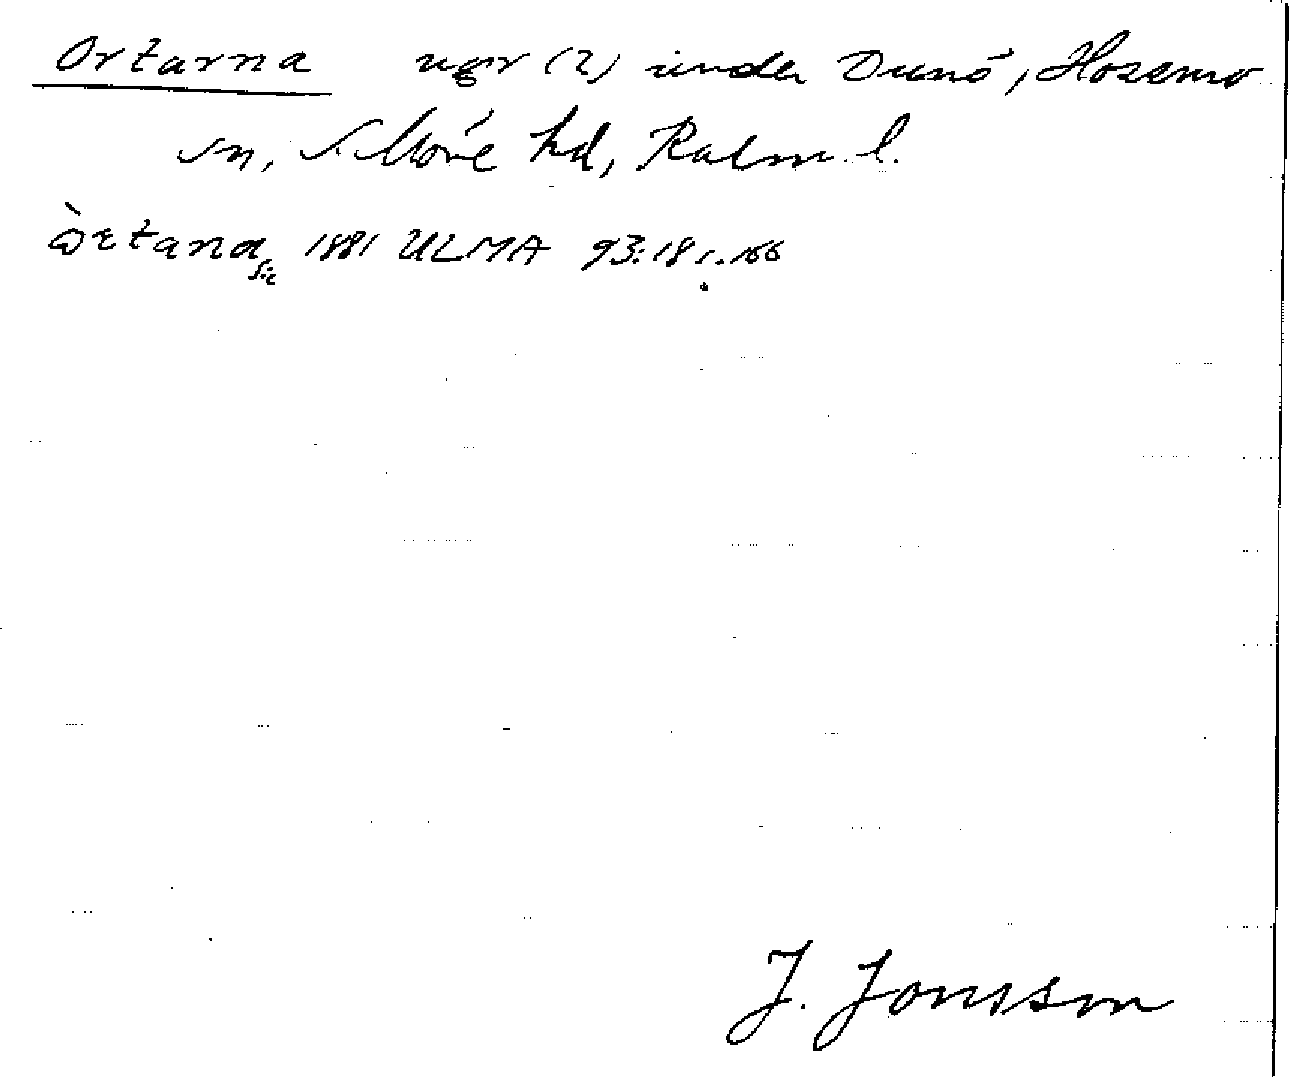 Ortarna ugr (2) under Dunö, Hossmo
sn, S. Möre hd, Kalm. l.
òrtana 1881 ULMA 93:18 s. 166
sic
J. Jonsson